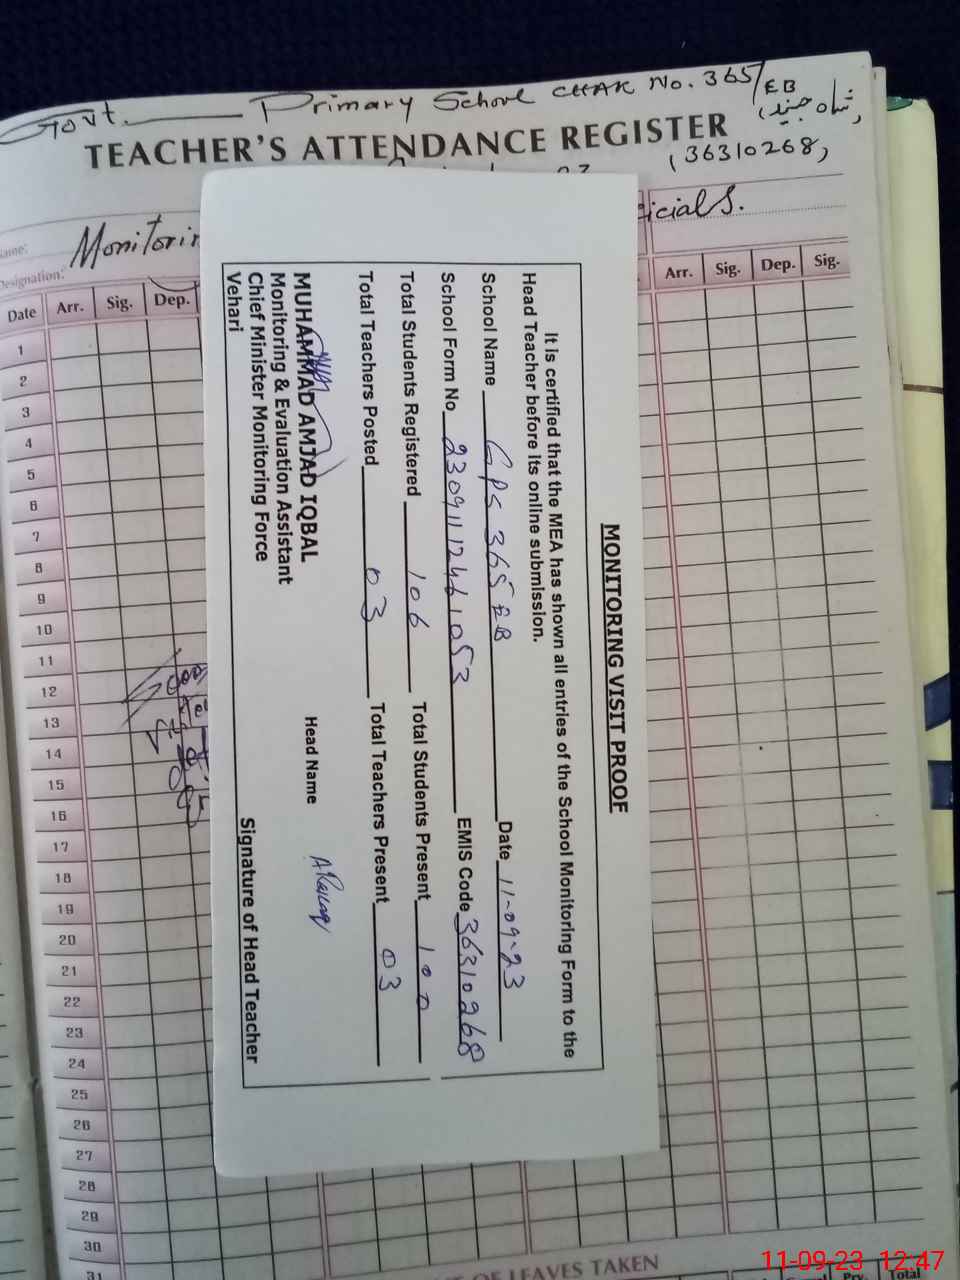 Govt. Primary School CHAK No. 365/EB
(شاہ جنید)
TEACHER'S ATTENDANCE REGISTER
(36310268)
Name: Monitorin icials.
Designation:
Date Arr. Sig. Dep. Arr. Sig. Dep. Sig.
1
2
3
4
5
6
7
8
9
10
11
12
13
14
15
16
17
18
19
20
21
22
23
24
25
26
27
28
29
30
31
OF LEAVES TAKEN
Total
MONITORING VISIT PROOF
It is certified that the MEA has shown all entries of the School Monitoring Form to the
Head Teacher before its online submission.
School Name GPS 365 EB Date 11-09-23
School Form No 23091112461053 EMIS Code 36310268
Total Students Registered 106 Total Students Present 100
Total Teachers Posted 03 Total Teachers Present 03
MUHAMMAD AMJAD IQBAL Head Name
Monitoring & Evaluation Assistant
Chief Minister Monitoring Force
Vehari Signature of Head Teacher
11-09-23 12:47